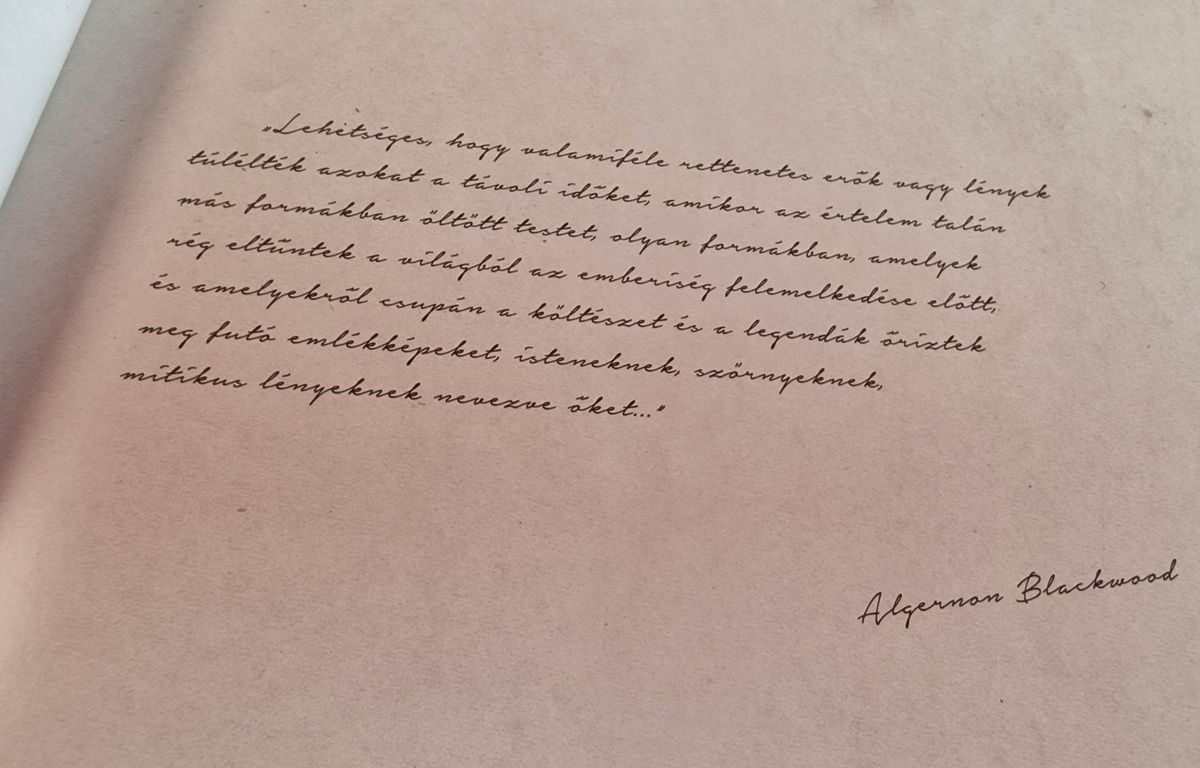 „Lehetséges, hogy valamiféle rettenetes erők vagy lények
túlélték azokat a távoli időket, amikor az értelem talán
más formákban öltött testet, olyan formákban, amelyek
rég eltűntek a világból az emberiség felemelkedése előtt,
és amelyekről csupán a költészet és a legendák őriztek
meg futó emlékképeket, isteneknek, szörnyeknek,
mitikus lényeknek nevezve őket..."
Algernon Blackwood